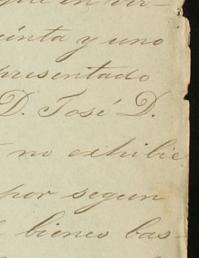 que en vir-
einta y uno
presentado
D. José D.
no exhibie
por segun
bienes bas-